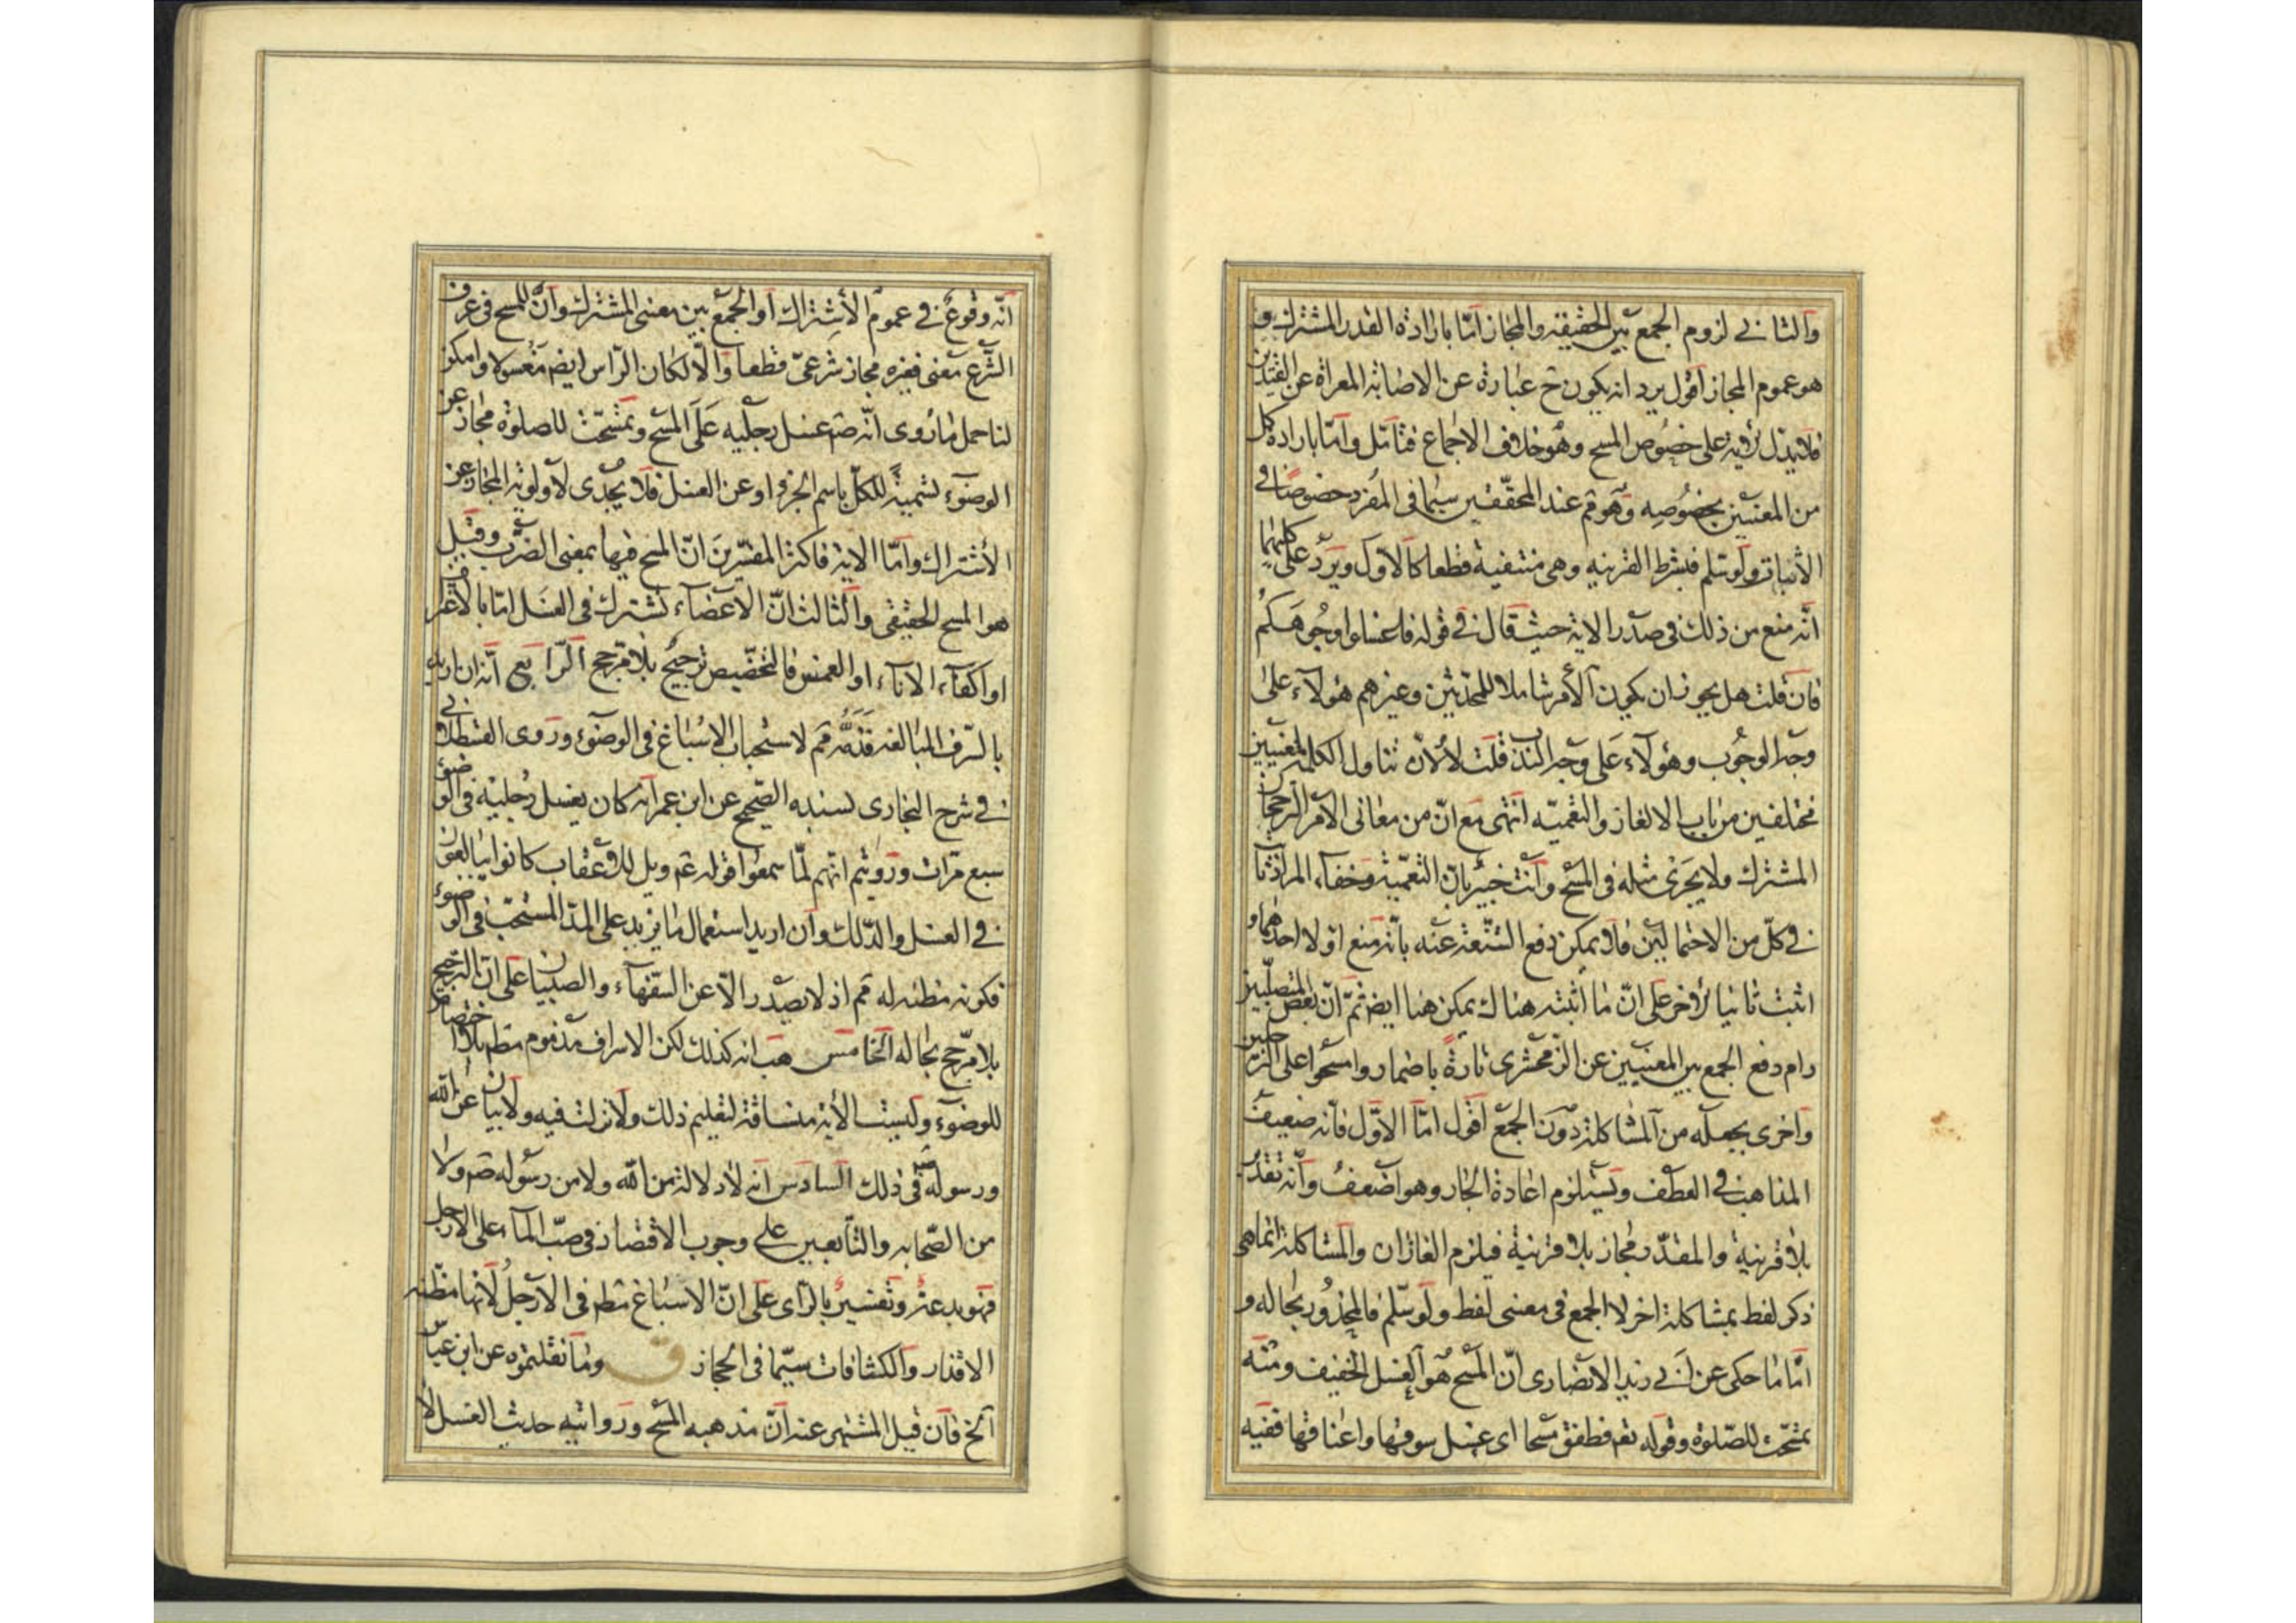 والثاني لزوم الجمع بين الحقيقة والمجاز امّا بارادة القدر المشترك و
هو عموم المجاز اقول يرد انه يكون ح عبارة عن الاصابة المعراة عن القيدين
فلا يدل على خصوص المسح وهو خلاف الاجماع فتامّل وامّا بارادة كل
من المعنيين بخصوصه وهو مم عند المحقّقين سيّما فى المفرد خصوصا فى
الاثبات ولو سلم فبشرط القرينة وهى منتفية قطعا كالاول ويرد على كليهما
انّه منع من ذلك فى صدر الاية حيث قال فى قوله فاغسلوا وجوهكم
فان قلت هل يجوز ان يكون الأمر شاملا للمحدثين وغيرهم هؤلاء على
وجه الوجوب وهؤلاء على وجه الندب قلت لا لانّ تناول الكلمة لمعنيين
مختلفين من باب الالغاز والتعمية انتهى مع انّ من معانى الامر الرجحان
المشترك ولا يجرى مثله فى المسح وانت خبير بانّ التعمية وخفاء المراد ثابتان
فى كلّ من الاحتمالين فلا يمكن دفع الشنعة عنه بانّه منع اولا احدهما و
اثبت ثانيا الاخر على انّ ما اثبته هناك يمكن هنا ايض ثمّ انّ بعض المتصلّبين
رام دفع الجمع بين المعنيين عن الزمخشرى تارة باضمار وامسحوا على الرجلين
واخرى بجعله من المشاكلة دون الجمع اقول امّا الاوّل فانّه ضعيف
المذاهب فى العطف ويستلزم اعادة الجار وهو اضعف وانّه تقدير
بلا قرينة والمقدّر مجاز بلا قرينة فيلزم الغازان والمشاكلة انما هى
ذكر لفظ بمشاكلة اخر لا الجمع فى معنى لفظ ولو سلّم فالمحذور بحاله و
امّا ما حكى عن ابى زيد الانصارى انّ المسح هو الغسل الخفيف ومنه
تمسّحت للصّلوة وقوله تعم فطفق مسحا اى غسل سوقها واعناقها ففيه
انّه وقوع فى عموم الأشتراك او الجمع بين معنى المشترك وانّ للمسح فى عرف
الشّرع معنى فغيره مجاز شرعىّ قطعا والّا لكان الرّاس ايض مغسولا وامكن
لنا حمل ما روى انّه صم غسل رجليه على المسح وتمسّحت للصلوة مجاز عن
الوضوء تسمية للكلّ باسم الجزء او عن الغسل فلا يجدى لاولوية المجاز عن
الأشتراك وامّا الاية فاكثر المفسّرين انّ المسح فيها بمعنى الضرب وقيل
هو المسح الحقيقى والثالث انّ الاعضاء تشترك فى الغسل امّا بالاغتراف
او اكفاء الاناء او الغمس فالتخصّيص ترجيح بلا مرجح الرّابع انّه ان اريد
بالسّرف المبالغة فمم لاستحباب الاسباغ فى الوضوء وروى القسطلانى
فى شرح البخارى بسنده الصّحيح عن ابن عمر انّه كان يغسل رجليه فى الوضوء
سبع مرّات ورويتم انّهم لمّا سمعوا قوله عم ويل للاعقاب كانوا يبالغون
فى الغسل والدّلك وان اريد استعمال ما يزيد على المدّ المستحبّ فى الوضوء
فكونه مظنة له مم اذ لا يصدر الّا عن السّفهاء والصبيان على انّ الترجيح
بلا مرجّح بحاله الخامس هب انه كذلك لكن الاسراف مذموم مطم بلا اختصاص
للوضوء وليست الأية منساقة لتعليم ذلك ولا نزلت فيه ولا بيان عن الله
ورسوله فى ذلك السادس انه لا دلالة من الله ولا من رسوله صم ولا
من الصّحابة والتّابعين على وجوب الاقتصاد فى صبّ الماء على الارجل
فهو بدعة وتفسير بالرّاى على انّ الاسباغ مطم فى الارجل لانّها مظنّة
الاقذار والكثافات سيّما فى الحجاز ق وما نقلتموه عن ابن عبّاس
الخ فان قيل المشتهر عنه انّ مذهبه المسح وروايته حديث الغسل لا